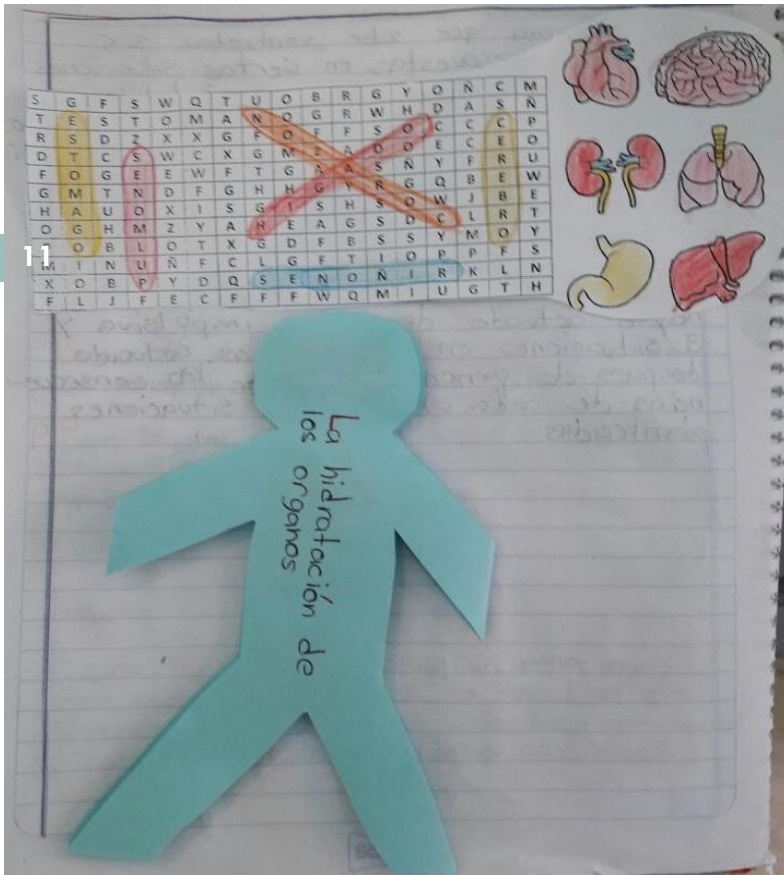 S G F S W Q T U O B R G Y O Ñ C M
T E S T O M A N O G R W H D A S Ñ
R S D Z X X G F O F F S O C C C P
D T C S W C X G M Z A D O E C E O
F O G E E W F T G A A S Ñ Y F R U
G M T N D F G H H G Y R G Q B E W
H A U O X I S G I S H S O W J B E
O G H M Z Y A H E A G S D C L R T
O B L O T X G D F B S S Y M O Y
M I N U Ñ F C L G F T I O P P F S
X O B P Y D Q S E N O Ñ I R K L N
F L J F E C F F F W Q M I U G T H
11
La hidratación de
los organos